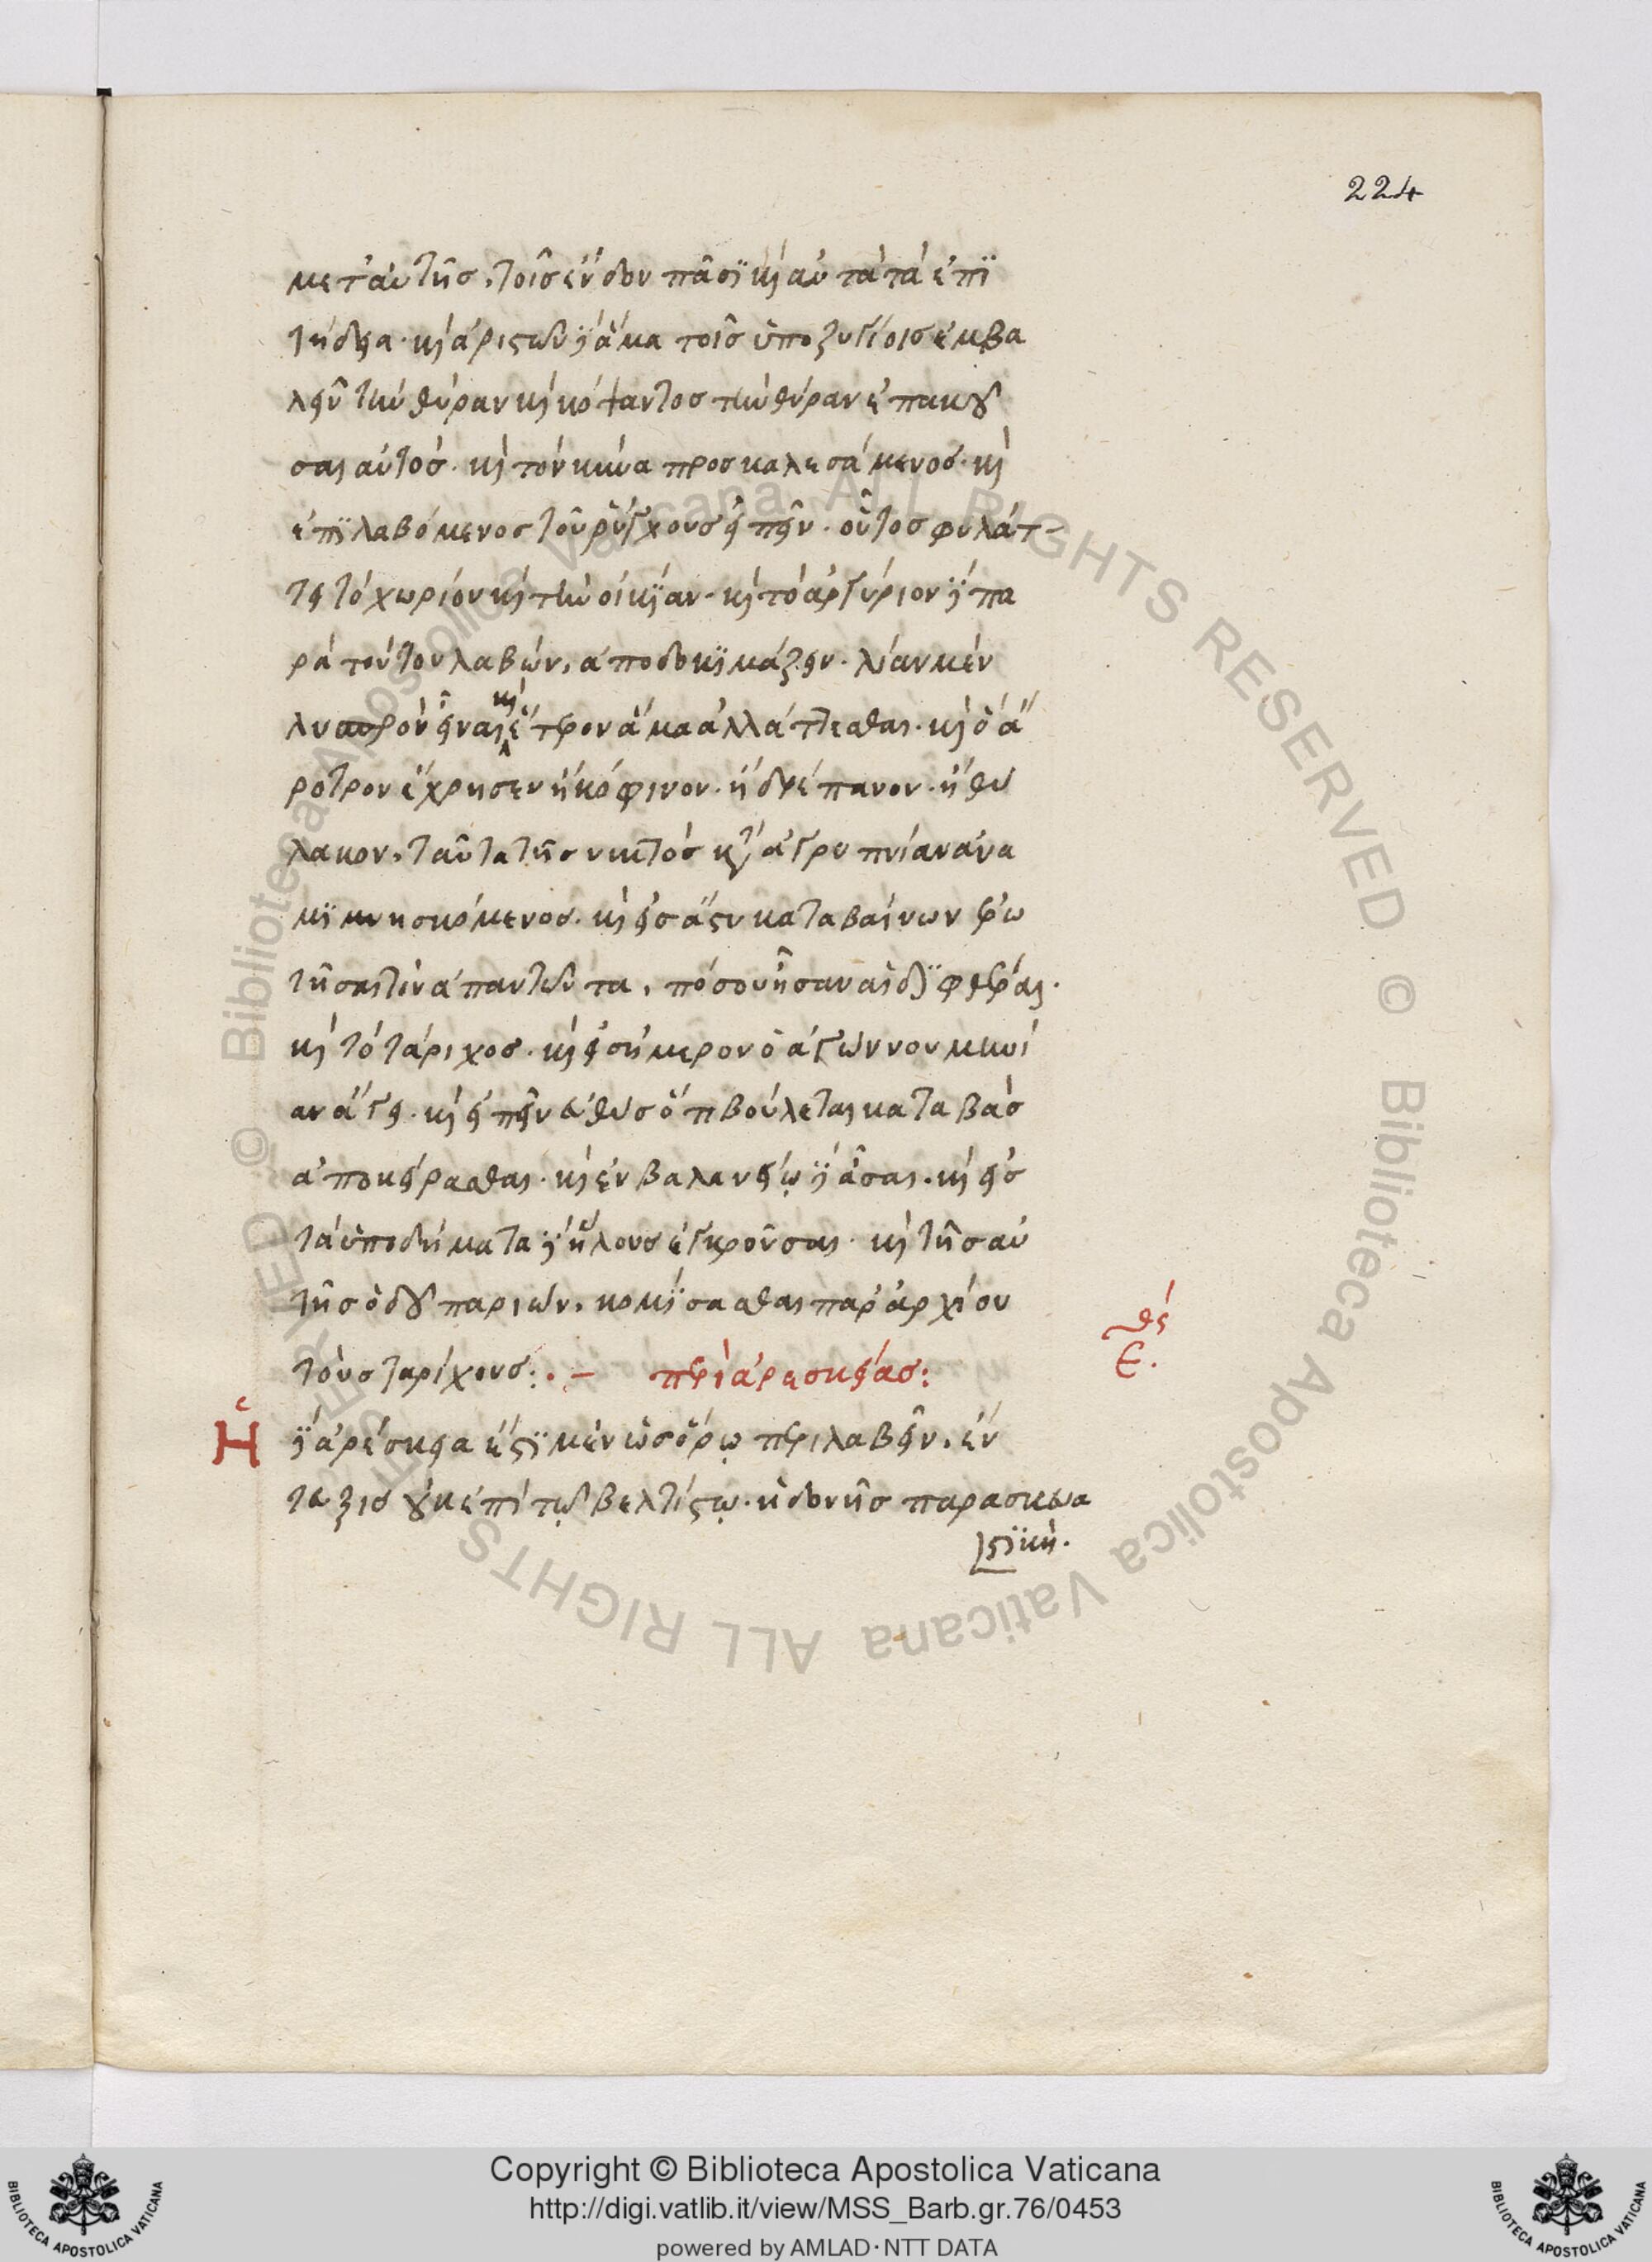 224
μετ' αὐτῆς. τοῖς ἔνδον πᾶσϊ καὶ αὐτὰ τὰ ἐπϊ
τήδεια· καὶ ἀριστῶν δὲ ἅμα τοῖς ὑποζυγίοις ἐμβα
λεῖν τὴν θύραν καὶ κόψαντος τὴν θύραν ἐπακού
σαι αὐτός· καὶ τὸν κύνα προσκαλεσάμενος· καὶ
ἐπϊλαβόμενος τοῦ ῥύγχους εἰπεῖν· οὗτος φυλάτ-
τει τὸ χωρίον καὶ τὴν οἰκϊαν· καὶ τὸ ἀργύριον δὲ πα
ρὰ τούτου λαβών, ἀποδοκϊμάζειν· λίαν μὲν
λυπρὸν εἶναι καὶ ἕτερον ἅμα ἀλλάττεσθαι· καὶ ὃ ἄ
ροτρον ἔχρησεν ἢ κόφινον· ἢ δρέπανον· ἢ θύ
λακον. ταῦτα τῆς νυκτὸς κατὰ ἀγρυπνίαν ἀνα
μϊμνησκόμενος. καὶ εἰς ἄστυ καταβαίνων ἐρω
τῆσαι τὸν ἀπαντῶντα, πόσου ἦσαν αἱ δϊφθέραι·
καὶ τὸ τάριχος· καὶ εἰ σήμερον ὁ ἀγὼν νουμηνί
αν ἄγει· καὶ εἰπεῖν εὐθὺς ὅτι βούλεται καταβὰς
ἀποκείρασθαι· καὶ ἐν βαλανείῳ δὲ ἆσαι. καὶ εἰς
τὰ ὑποδήματα δὲ ἥλους ἐγκροῦσαι· καὶ τῆς αὐ
τῆς ὁδοῦ παριών. κομϊσασθαι παρ' ἀρχίου
τοὺς ταρίχους: . – περὶ ἀρεσκείας:
θέσ
ε.
Ἡ δὲ ἀρέσκεια ἔστϊ μὲν ὡς ὅρῳ περιλαβεῖν. ἔν
τευξις οὐκ ἐπὶ τῷ βελτίστῳ· ἡδονῆς παρασκευα
στϊκή.
Copyright © Biblioteca Apostolica Vaticana
http://digi.vatlib.it/view/MSS_Barb.gr.76/0453
powered by AMLAD·NTT DATA